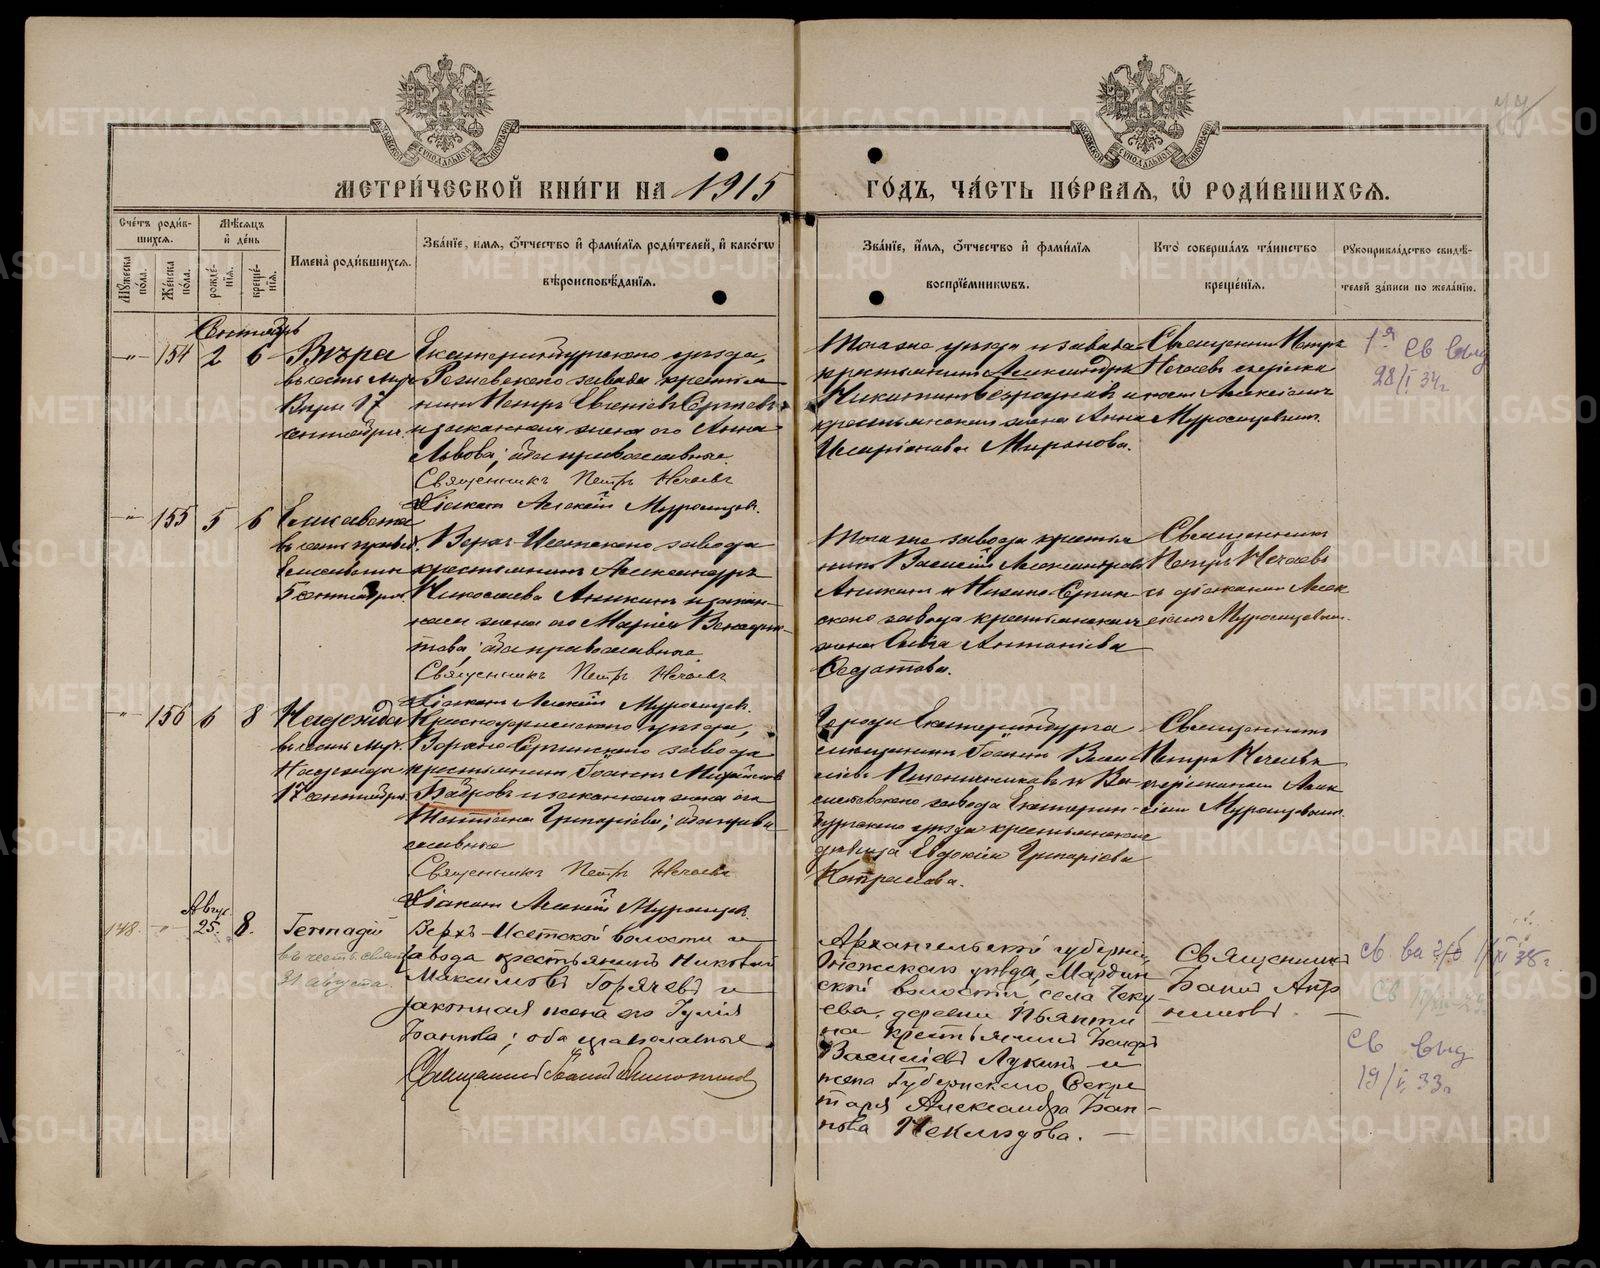 МЕТРИ́ЧЕСКОЙ КНИ́ГИ НА 1915
ГО́ДЪ, ЧА́СТЬ ПЕ́РВАЯ, Ѿ РОДИ́ВШИХСѦ.
Сче́тъ роди́в-
шихсѧ.
Мꙋ́жеска по́ла.
Же́нска по́ла.
Мѣ́сѧцъ
и҆ де́нь
рожде́-
нїѧ.
креще́-
нїѧ.
И҆мена̀ роди́вшихсѧ.
Зва́нїе, и҆́мѧ, ѻ҆́тчество и҆ фами́лїѧ роди́телей, и҆ како́гѡ
вѣроисповѣ́данїѧ.
Зва́нїе, и҆́мѧ, ѻ҆́тчество и҆ фами́лїѧ
воспрїе́мникѡвъ.
Кто̀ соверша́лъ та́инство
креще́нїѧ.
Рꙋкоприкла́дство свидѣ́-
телей за́писи по жела́нїю.
Сентябрь
154 2 6 Вѣра
въ честь муч.
Вѣры 17
сентября.
Екатеринбургскаго уѣзда,
Режевскаго завода крестья
нинъ Петръ Евгеніевъ Сергѣевъ
и законная жена его Анна
Львова; оба православные.
Священникъ Петръ Нечаевъ
Діаконъ Алексій Муромцевъ.
Того же уѣзда и завода
крестьянинъ Александръ
Никитинъ и
крестьянская жена Анна
Иларіонова Миронова.
Священникъ Петръ
Нечаевъ съ діако
номъ Алексіемъ
Муромцевымъ.
1я св выд
28/I 34г
155 5 6 Елисавета
въ честь правед.
Елисаветы
5 сентября.
Верхъ-Исетскаго завода
крестьянинъ Александръ
Николаевъ Аникинъ и закон-
ная жена его Марія Венедик-
това; оба православные
Священникъ Петръ Нечаевъ
Діаконъ Алексій Муромцевъ.
Того же завода крестья
нинъ Василій Александровъ
Аникинъ и Нижне-Сергин
скаго завода крестьянская
жена Ольга Антоніева
Ѳедотова.
Священникъ
Петръ Нечаевъ
съ діакономъ Алек
сіемъ Муромцевымъ.
156 6 8 Надежда
въ честь муч.
Надежды
17 сентября
Красноуфимскаго уѣзда,
Верхне-Сергинскаго завода
крестьянинъ Іоаннъ Михайловъ
Бадровъ и законная жена его
Татіана Григоріева; оба право
славные
Священникъ Петръ Нечаевъ
Діаконъ Алексій Муромцевъ.
Города Екатеринбурга
мѣщанинъ Іоаннъ Васи
ліевъ Пшеничниковъ и Ва
сильевскаго завода Екатерин-
бургскаго уѣзда крестьянская
дѣвица Евдокія Григоріева
Священникъ
Петръ Нечаевъ
съ діакономъ Алек
сіемъ Муромцевымъ.
Авгус.
148 25. 8. Геннадій
въ честь свят.
31 августа.
Верхъ-Исетской волости и
завода крестьянинъ Николай
Максимовъ Горячевъ и
законная жена его Юлія
Іванова; оба православные
Архангельской губерніи
Онежскаго уѣзда, Мардин
ской волости, села Чеку
ева, деревни Пьянти
на крестьянинъ
Василіевъ Лукинъ и
жена Губернскаго Секре
таря Александра Іван-
нова Неклюдова. —
Священникъ
св выд
19/I 33г
METRIKI.GASO-URAL.RU